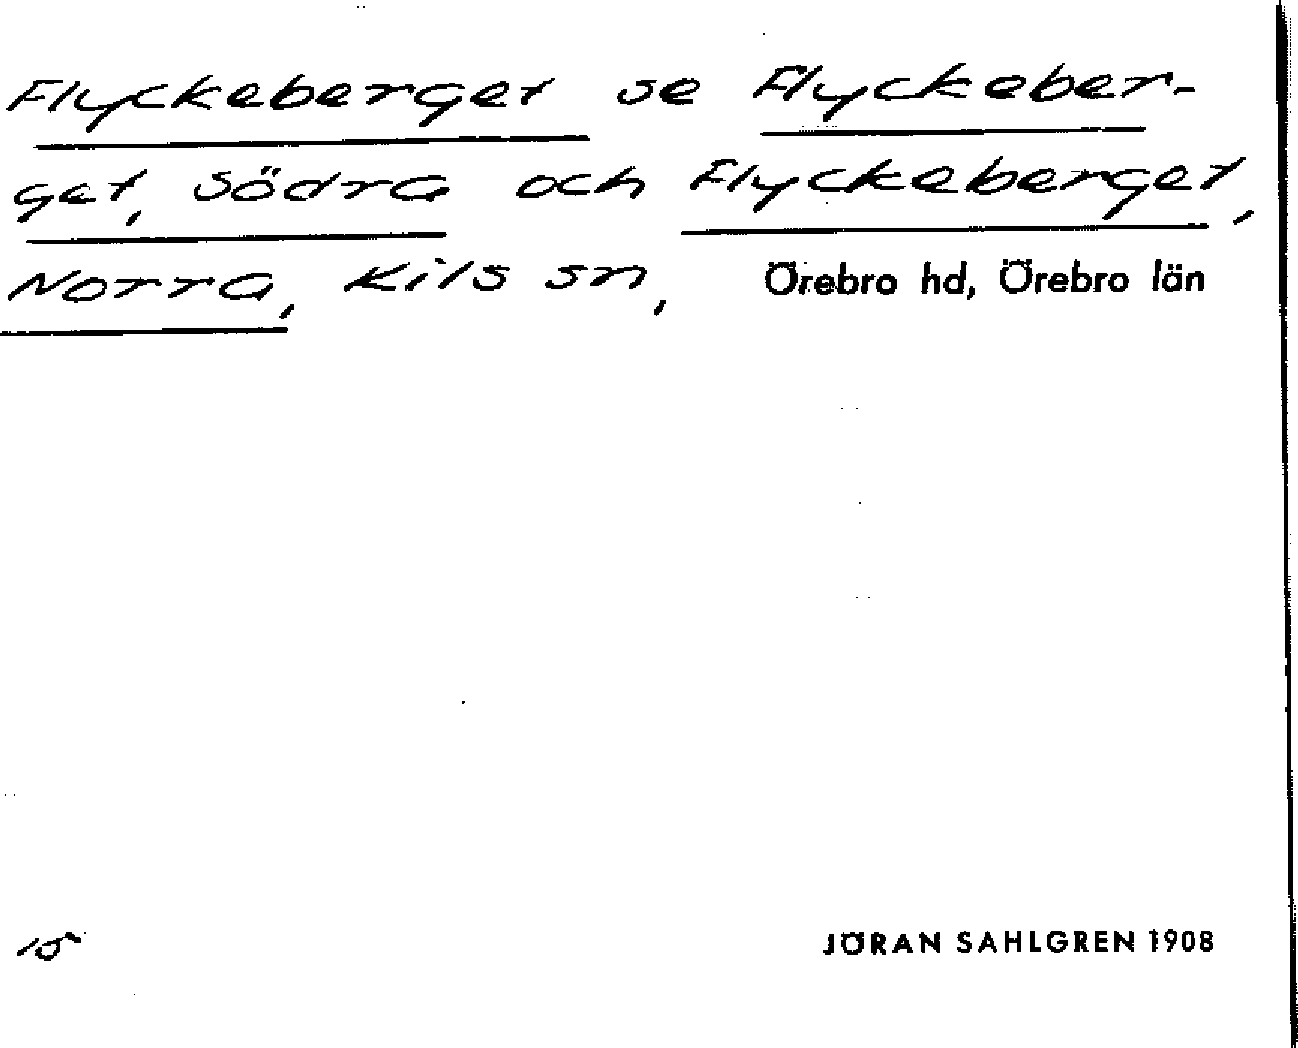 Flyckeberget se Flyckeber-
get, Södra och Flyckeberget,
Norra, Kils sn, Örebro hd, Örebro län
15
JÖRAN SAHLGREN 1908